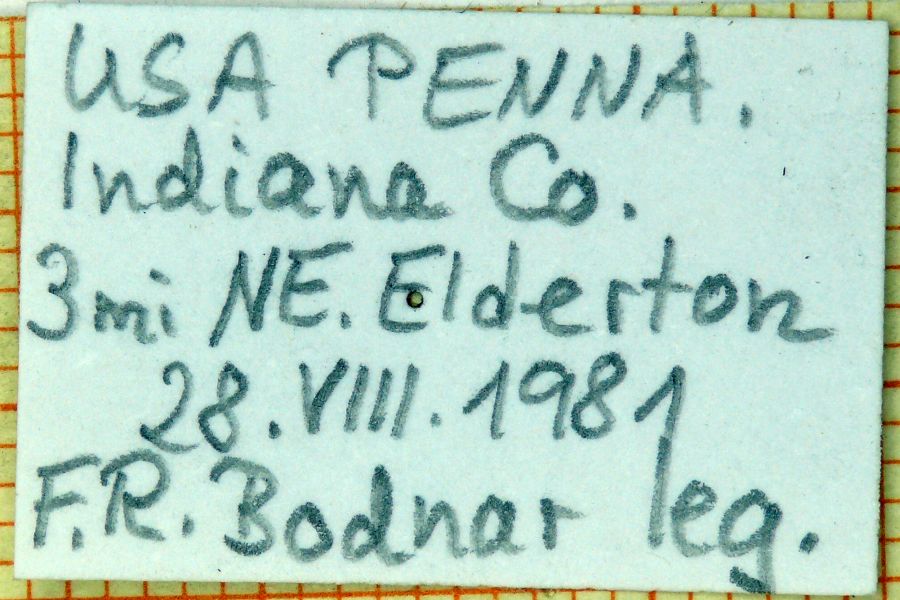 USA PENNA.
Indiana Co.
3mi NE. Elderton
28.VIII.1981
F.R. Bodnar leg.